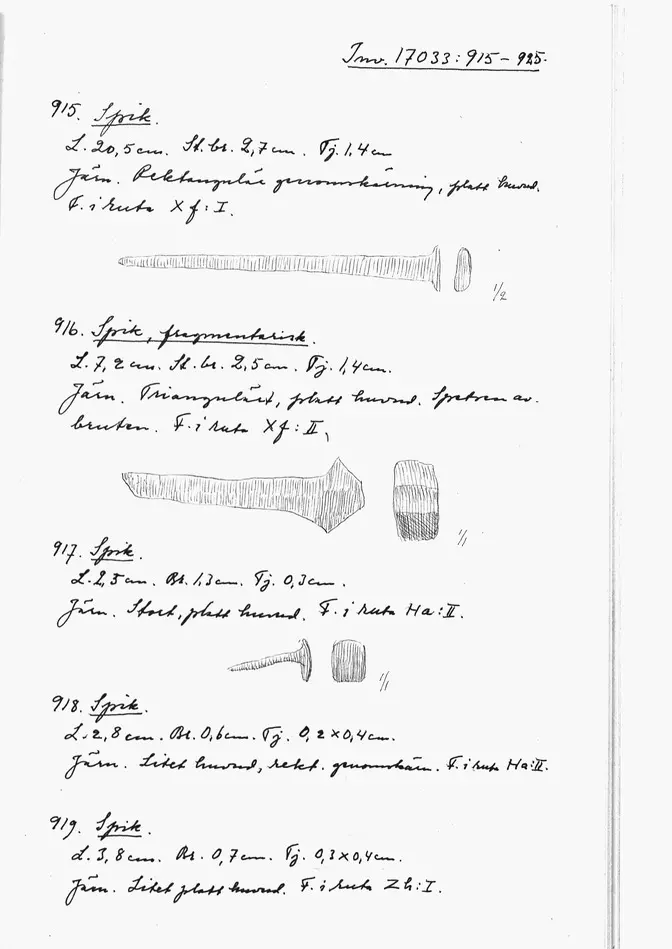 Inv. 17033:915-925.
915. Spik.
L. 20,5 cm. St. br. 2,7 cm. Tj. 1,4 cm
Järn. Rektangulär genomskärning, platt huvud.
F. i ruta Xf:I.
1/2
916. Spik, fragmentarisk.
L. 7,2 cm. St. br. 2,5 cm. Tj. 1,4 cm.
Järn. Triangulärt, platt huvud. Spetsen av-
bruten. F. i ruta Xf:II,
1/1
917. Spik.
L. 2,5 cm. Br. 1,3 cm. Tj. 0,3 cm.
Järn. Stort, platt huvud. F. i ruta Ha:II.
1/1
918. Spik.
L. 2,8 cm. Br. 0,6 cm. Tj. 0,2×0,4 cm.
Järn. Litet huvud, rekt. genomskärn. F. i ruta Ha:II.
919. Spik.
L. 3,8 cm. Br. 0,7 cm. Tj. 0,3×0,4 cm.
Järn. Litet platt huvud. F. i ruta Zh:I.